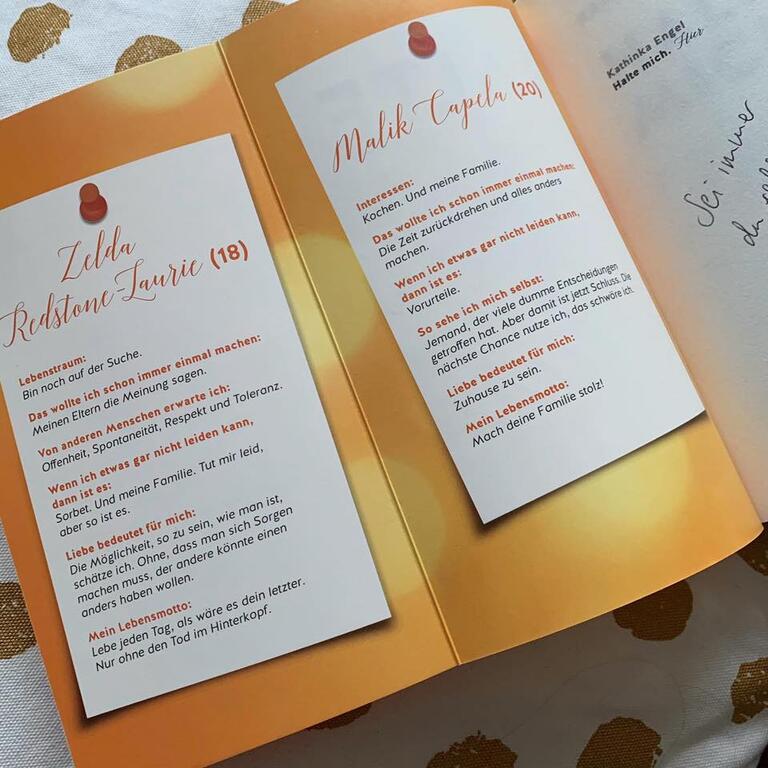 Zelda
Redstone-Laurie (18)
Lebenstraum:
Bin noch auf der Suche.
Das wollte ich schon immer einmal machen:
Meinen Eltern die Meinung sagen.
Von anderen Menschen erwarte ich:
Offenheit, Spontaneität, Respekt und Toleranz.
Wenn ich etwas gar nicht leiden kann,
dann ist es:
Sorbet. Und meine Familie. Tut mir leid,
aber so ist es.
Liebe bedeutet für mich:
Die Möglichkeit, so zu sein, wie man ist,
schätze ich. Ohne, dass man sich Sorgen
machen muss, der andere könnte einen
anders haben wollen.
Mein Lebensmotto:
Lebe jeden Tag, als wäre es dein letzter.
Nur ohne den Tod im Hinterkopf.
Malik Capela (20)
Interessen:
Kochen. Und meine Familie.
Das wollte ich schon immer einmal machen:
Die Zeit zurückdrehen und alles anders
machen.
Wenn ich etwas gar nicht leiden kann,
dann ist es:
Vorurteile.
So sehe ich mich selbst:
Jemand, der viele dumme Entscheidungen
getroffen hat. Aber damit ist jetzt Schluss. Die
nächste Chance nutze ich, das schwöre ich.
Liebe bedeutet für mich:
Zuhause zu sein.
Mein Lebensmotto:
Mach deine Familie stolz!
Kathinka Engel
Halte mich. Hier
Sei immer
du